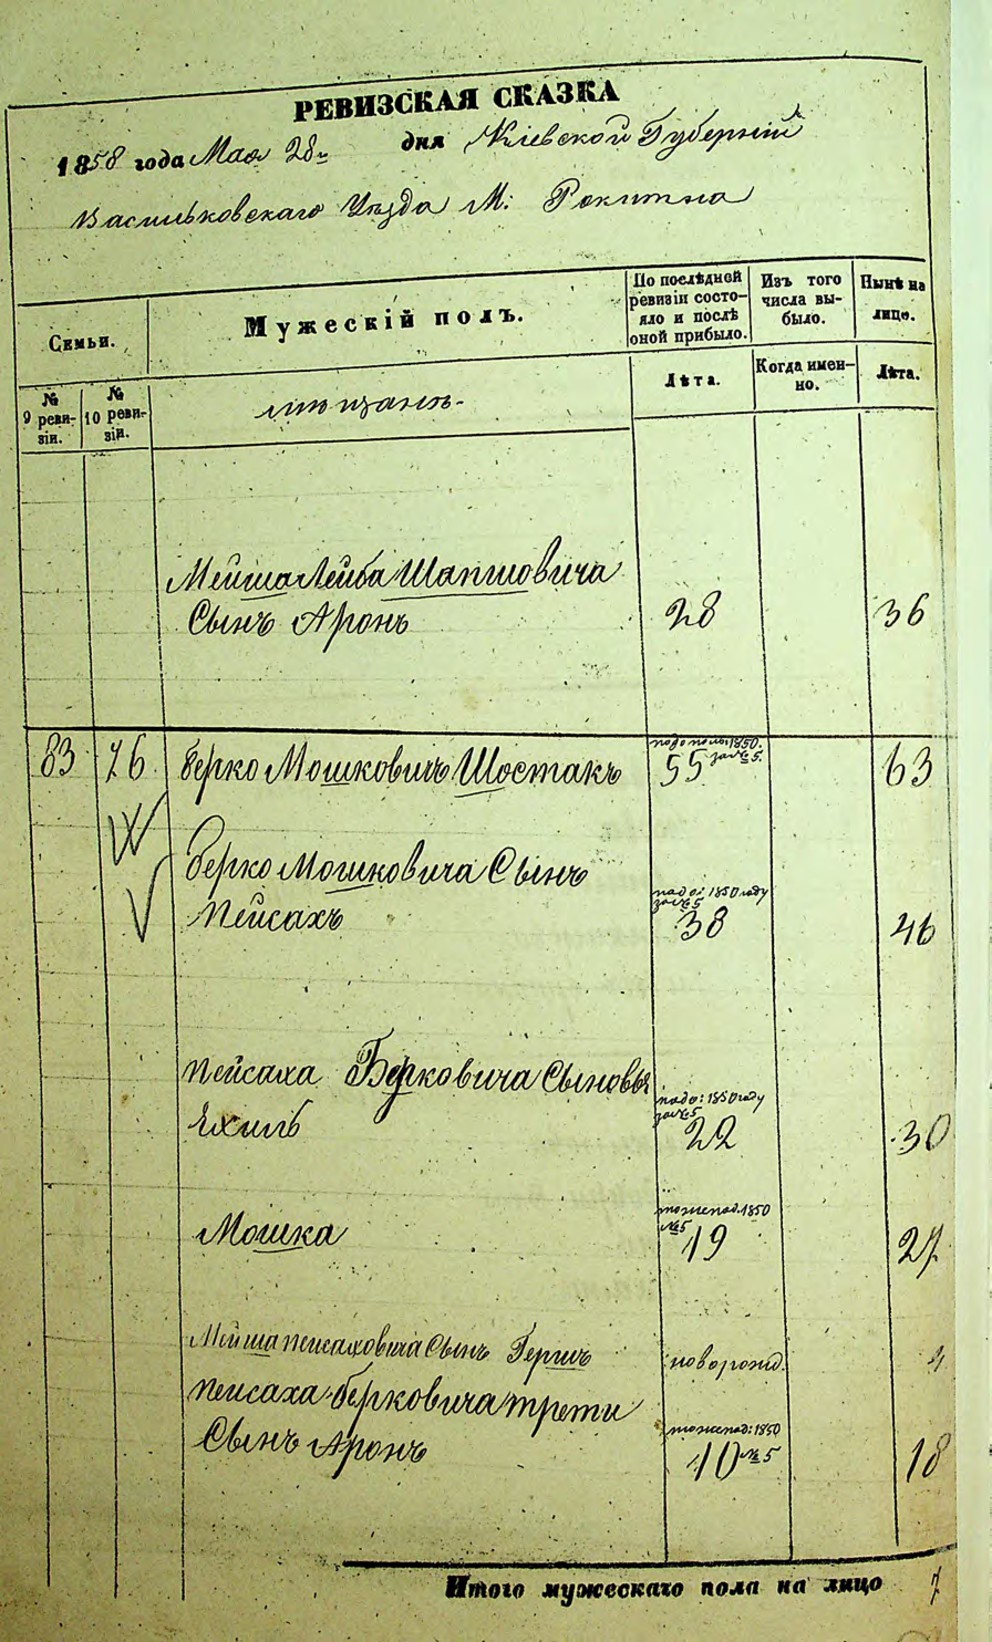 РЕВИЗСКАЯ СКАЗКА
1858 года Мая 28 дня Кіевской Губерніи
Васильковскаго Уѣзда М: Рокитна
Семьи.
Мужескій полъ.
По послѣдней ревизіи состо-
яло и послѣ
оной прибыло.
Изъ того
числа вы-
было.
Нынѣ на
лицо.
№
9 реви-
зіи.
№
10 реви-
зіи.
мѣщанъ.
Лѣта.
Когда имен-
но.
Лѣта.
Мейша Лейба Шапшовича
Сынъ Аронъ 28 36
83 76 Берко Мошковичъ Шостакъ 1850 № 5. 55 63
Берко Мошковича Сынъ
Пейсахъ 1850 году № 5 38 46
Пейсаха Берковича Сыновья
Ехиль 1850 году № 5 22 30
Мошка 1850 № 5 19 27
Мейша Пейсаховича Сынъ Гершъ новорожд. 4
Пейсаха Берковича трети
Сынъ Аронъ 1850 № 5 10 18
Итого мужескаго пола на лицо 7